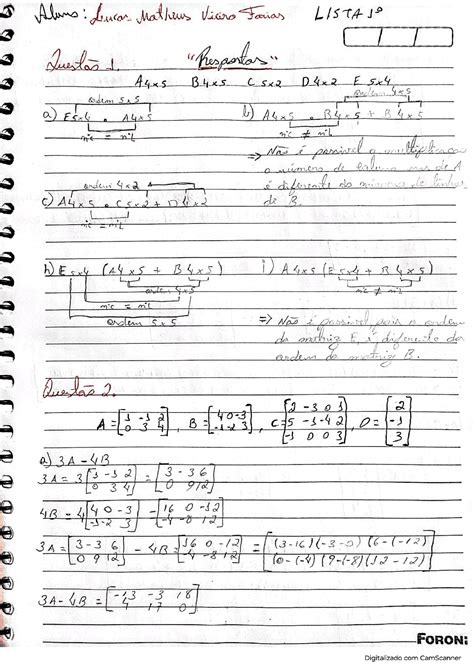 Aluno: Lucas Matheus Vieira Farias LISTA 1º
"Respostas"
Questão 1.
A4x5 B4x5 C5x2 D4x2 E5x4
ordem 5x5
a) E5x4 . A4x5
nc = nl
ordem 4x5
b) A4x5 . B4x5 + B4x5
nc ≠ nl
=> Não é possível a multiplicação
o número de coluna da A
é diferente do número de linhas
de B.
ordem 4x2
c) A4x5 . C5x2 + D4x2
nc = nl
h) E5x4 (A4x5 + B4x5)
ordem 4x5
nc = nl
ordem 5x5
i) A4x5 (E5x4 + B4x5)
nc ≠ nl
=> Não é possível pois a ordem
da matriz E, é diferente da
ordem da matriz B.
Questão 2.
A = [1 -1 2 / 0 3 4], B = [4 0 -3 / -1 -2 3], C = [2 -3 0 1 / 5 -1 -4 2 / -1 0 0 3], D = [2 / -1 / 3]
a) 3A - 4B
3A = 3 [1 -1 2 / 0 3 4] = [3 -3 6 / 0 9 12]
4B = 4 [4 0 -3 / -1 -2 3] = [16 0 -12 / -4 -8 12]
3A = [3 -3 6 / 0 9 12] - 4B = [16 0 -12 / -4 -8 12] = [(3-16) (-3-0) (6-(-12)) / (0-(-4)) (9-(-8)) (12-12)]
3A - 4B = [-13 -3 18 / 4 17 0]
FORON:
Digitalizado com CamScanner